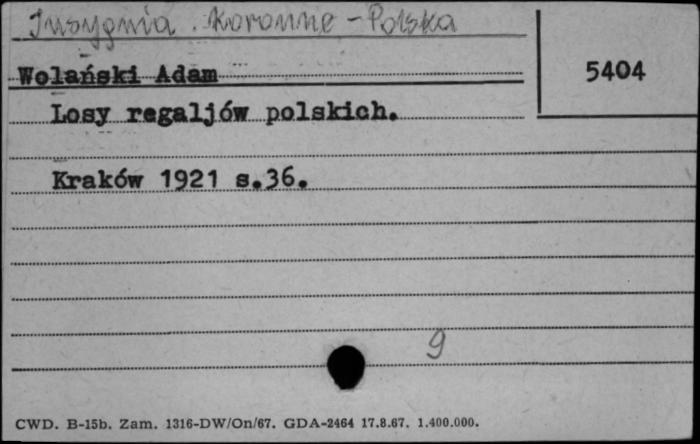 Insygnia Koronne - Polska
Wolański Adam
5404
Losy regaljów polskich.
Kraków 1921 s.36.
9
CWD. B-15b. Zam. 1316-DW/On/67. GDA-2464 17.8.67. 1.400.000.